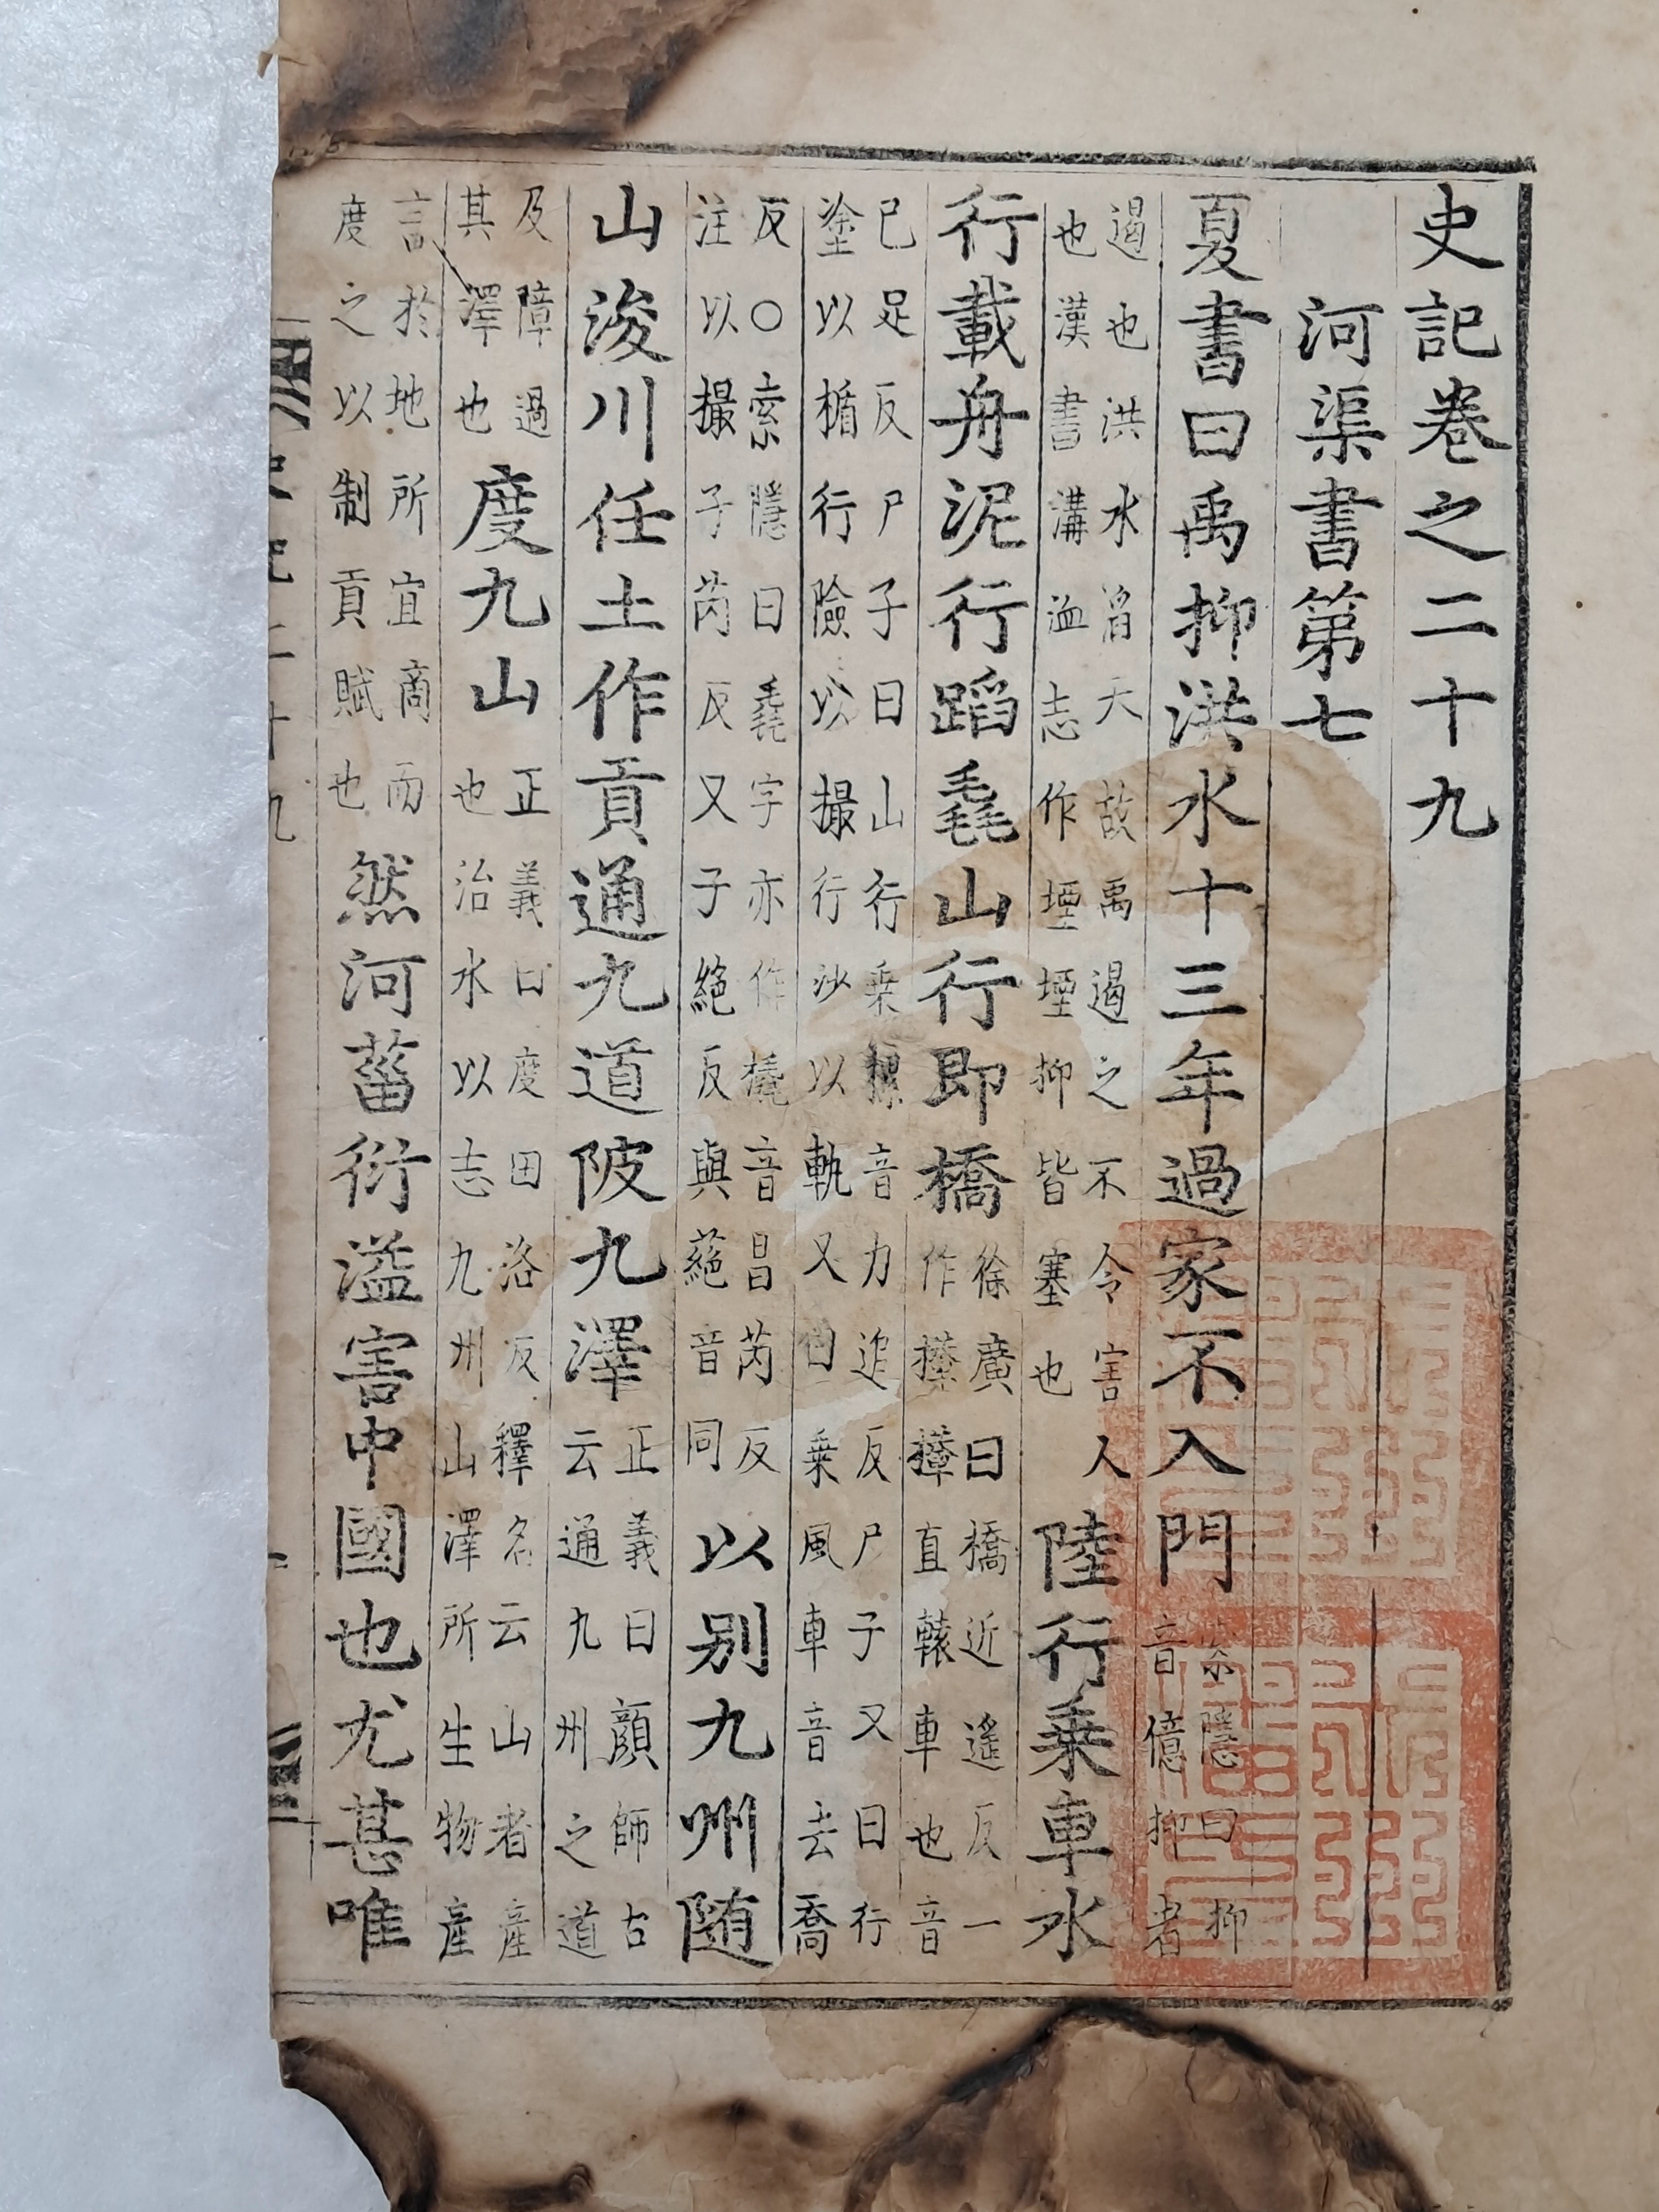 史記卷之二十九
河渠書第七
夏書曰禹抑洪水十三年過家不入門索隱曰抑音億抑者
遏也洪水滔天故禹遏之不令害人也漢書溝洫志作堙堙抑皆塞也陸行乗車水
行載舟泥行蹈毳山行即橋徐廣曰橋近遙反一作檋檋直轅車也音
已足反尸子曰山行乗樏音力追反尸子又曰行塗以楯行險以撮行沙以軌又曰乗風車音去喬
反○索隱曰毳字亦作橇音昌芮反注以撮子芮反又子絕反與蕝音同以别九州随
山浚川任土作貢通九道陂九澤正義曰顔師古云通九州之道
及障遏其澤也度九山正義曰度田洛反釋名云山者產也治水以志九州山澤所生物產
言於地所宜商而度之以制貢賦也然河菑衍溢害中國也尤甚唯
史記二十九
一